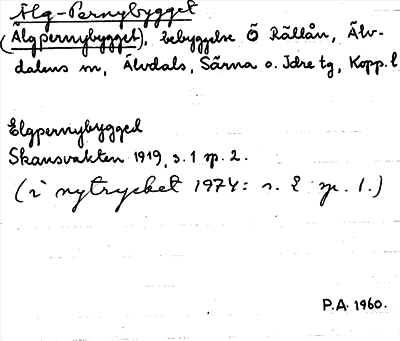 Älg-Pernybygget
(Älgpernybygget), bebyggelse Ö Rällån, Älv-
dalens sn, Älvdals, Särna o. Idre tg, Kopp. l
Elgpernybygged
Skansvakten 1919, s. 1 sp. 2.
(i nytrycket 1974: s. 2 sp. 1.)
P.A. 1960.